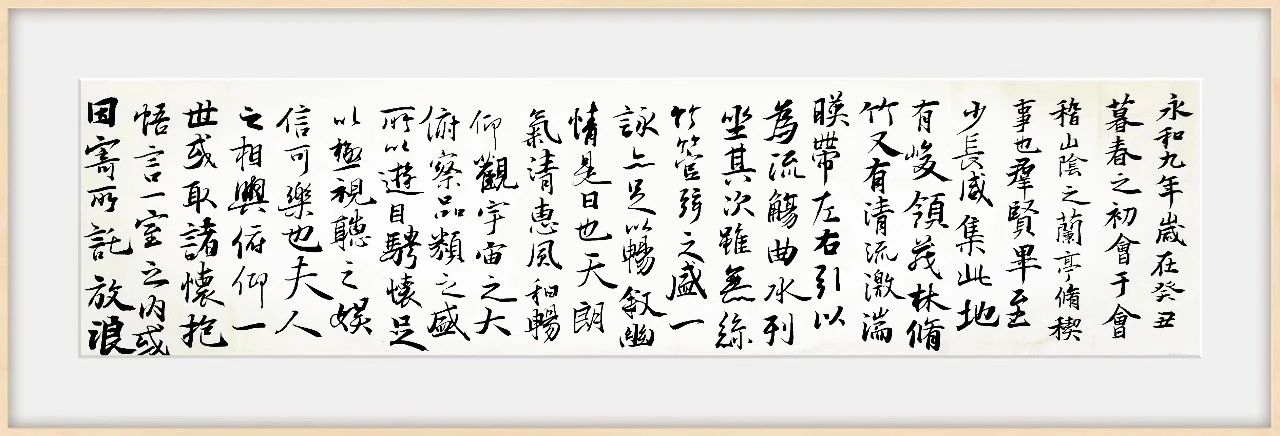 永和九年歲在癸丑
暮春之初會于會
稽山陰之蘭亭脩稧
事也羣賢畢至
少長咸集此地
有峻領茂林脩
竹又有清流激湍
暎帶左右引以
為流觴曲水列
坐其次雖無絲
竹管弦之盛一
詠亦足以暢敘幽
情是日也天朗
氣清惠風和暢
仰觀宇宙之大
俯察品類之盛
所以遊目騁懷足
以極視聽之娛
信可樂也夫人
之相與俯仰一
世或取諸懷抱
悟言一室之内或
因寄所託放浪